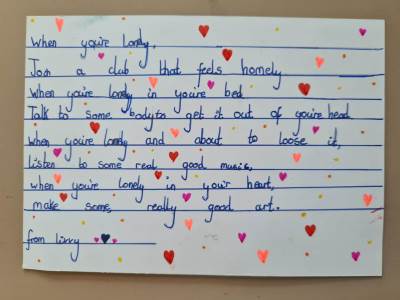 When you're lonely,
Join a club that feels homely.
When you're lonely in you're bed
Talk to some body to get it out of you're head.
When you're lonely and about to loose it,
listen to some real good music,
when you're lonely in your heart,
make some really good art.
from lizzy